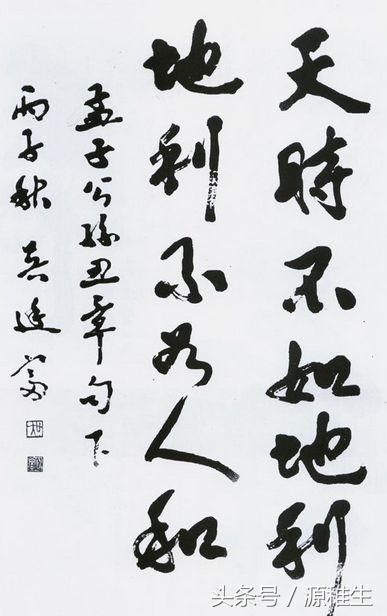 天時不如地利
地利不如人和
孟子公孫丑章句下
丙子秋
头条号 / 源稚生